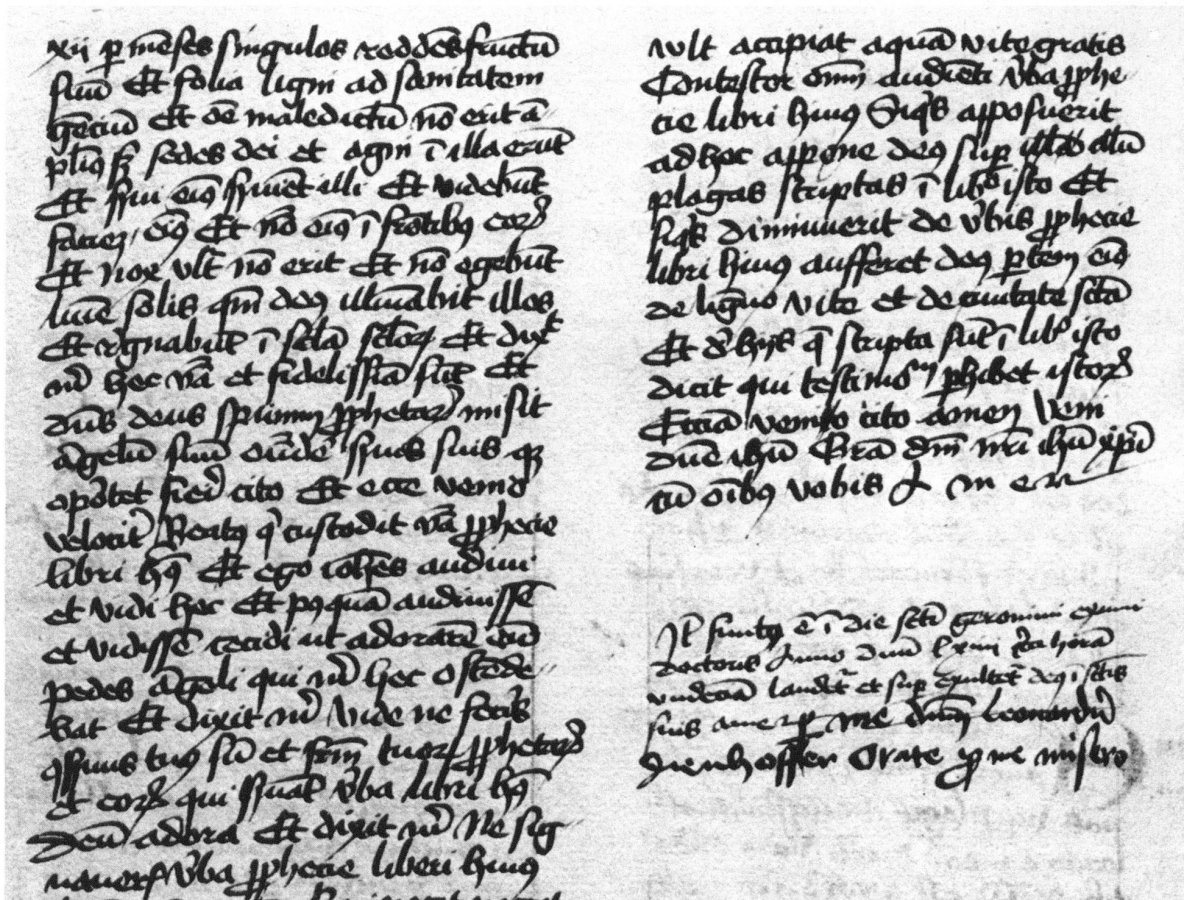 xij p mēses singulos reddēs fructū
suū Et folia ligni ad sanitatem
gēciū Et oē maledictū nō erit ā
plius sꝫ sedes dei et agni ī illa erūt
Et ſſui eiꝰ ſſuiēt illi Et videbūt
faciez eiꝰ Et nō eiꝰ ī frōtibꝰ eorꝝ
Et nox vlt̄ nō erit Et nō egebūt
lumē solis qm̄ deꝰ illumabit illos
Et regnabūt ī scl̄a scl̄oꝝ Et dixt
m̄ hec v̄a et fidelissīa sūt Et
dūs deus spirituum ꝓphetarꝝ misit
āgelū suū ondē ſſuos suis qꝫ
opōtet fieri cito Et ecce venio
velocit̄ Beatꝰ q̄ custodit v̄a ꝓphecie
libri hꝰ Et ego ioh̄es audiui
et vidi hec Et pꝰquā audiuissē
et vidissē cecidi ut adorarē an̄
pedes āgeli qui m̄ hec ostēde
bat Et dixit m̄ Vide ne fec̄is
ꝯſſuus tuꝰ sū et frm̄ tuoꝝ ꝓphetarꝝ
et eorꝝ qui ſſuāt v̄ba libri hꝰ
Deū adora Et dixit m̄ Ne sig
naueris v̄ba ꝓphecie liberi huiꝰ
vult accipiat aquā vite gratis
Contestor omī audiēti v̄ba ꝓphe
cie libri huiꝰ Siqs apposuerit
ad hec appone deꝰ sup illū
plagas scriptas ī libro isto Et
siqs diminuerit de v̄bis ꝓphecie
libri huiꝰ aufferet deꝰ ꝑtem eiꝰ
de ligno vite et de ciuitate sctā
Et de hijs q̄ scripta sūt ī lib isto
dicit qui testimonium ꝑhibet istorꝝ
Etiā venio cito amen Veni
dūe ihū Grā dm̄ nr̄i ihū xp̄i
cū oībꝰ vobis A m e n
finitꝰ ē ī die scti geronimi eximi
doctoris Anno dm̄ lxiiii horā
vndeciā laudet̄ et sup exultet̄ deꝰ ī sctis
suis amen ꝑ me leonardū
dienhoffer Orate ꝓ me misero